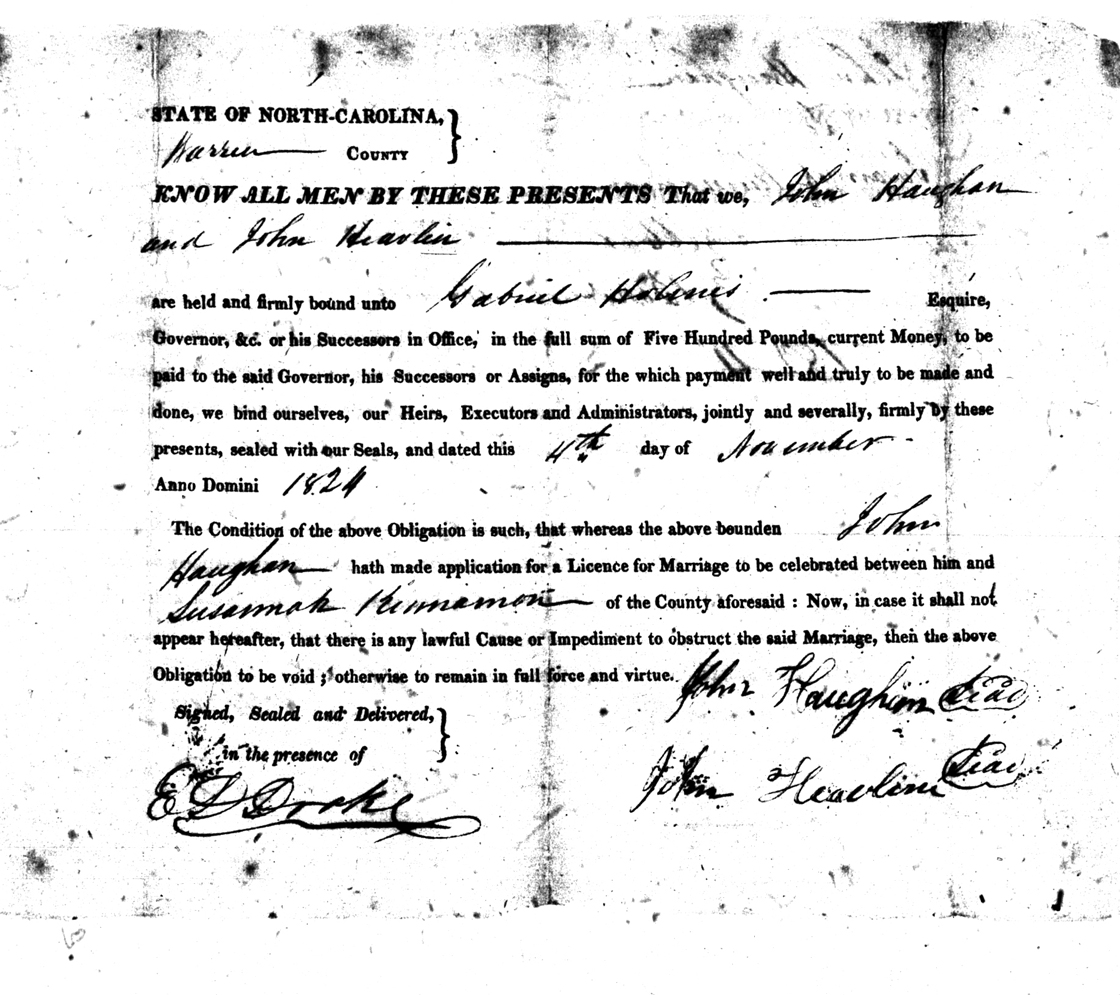 STATE OF NORTH-CAROLINA, }
Warren County
KNOW ALL MEN BY THESE PRESENTS That we, John Haughan
and John Heavlin
are held and firmly bound unto Gabriel Holmes Esquire,
Governor, &c. or his Successors in Office, in the full sum of Five Hundred Pounds, current Money, to be
paid to the said Governor, his Successors or Assigns, for the which payment well and truly to be made and
done, we bind ourselves, our Heirs, Executors and Administrators, jointly and severally, firmly by these
presents, sealed with our Seals, and dated this 4th day of November
Anno Domini 1824
The Condition of the above Obligation is such, that whereas the above bounden John
Haughan hath made application for a Licence for Marriage to be celebrated between him and
Susannah Kinnamon of the County aforesaid : Now, in case it shall not
appear hereafter, that there is any lawful Cause or Impediment to obstruct the said Marriage, then the above
Obligation to be void ; otherwise to remain in full force and virtue.
John Haughan Seal
Signed, Sealed and Delivered, }
in the presence of
John Heavlin Seal
E D Drake